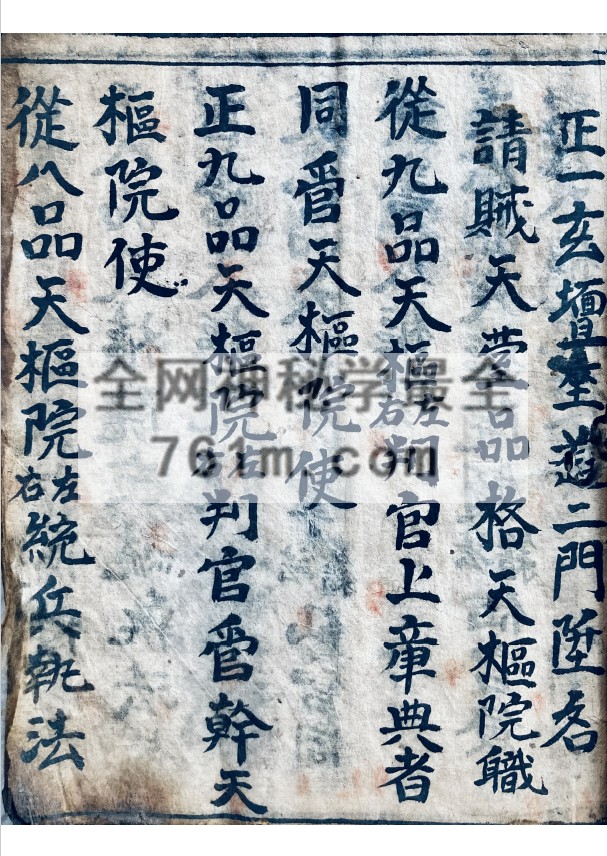 正一玄壇二門陞名
請賊天品格天樞院職
從九品天樞左右判官上章典者
同管天樞院使
正九品天樞院判官管幹天
樞院使
從八品天樞院左右統兵執法
全网神科学最全
761m.com